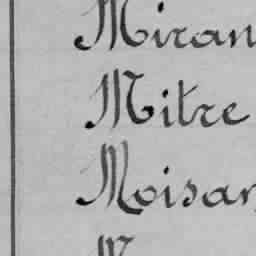 Miran
Mitre
Moisan